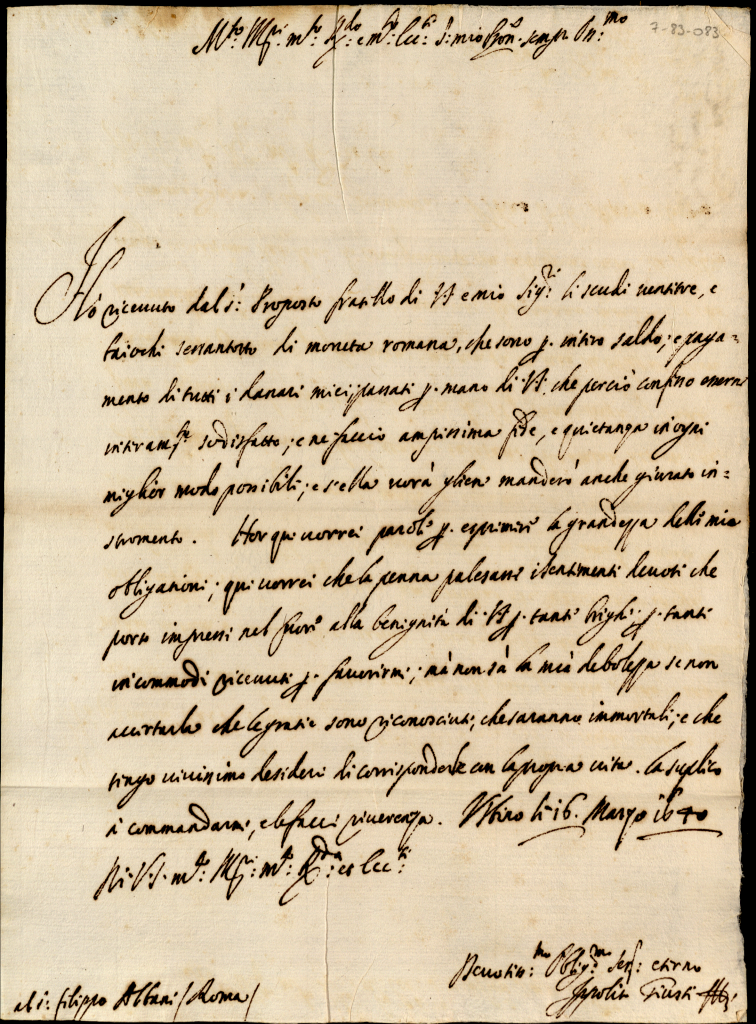 7-83-083
M.to Ill.re m.to R.do e m.to Ecc.te S.r mio Pron. sempre Oss.mo
Hò riceuuto dal S.r Proposto fratello di VS e mio Sig.re li scudi uentitre, e
baiochi sessantotto di moneta romana, che sono p. intiro saldo; e paga-
mento di tutti i danari miei passati p. mano di VS. che perciò confesso essern
intieram.te sodisfatto; e ne faccio ampissima fede, e quietanza in ogni
miglior modo possibili; e s'ella uorà glien manderò anche giurato in=
stromento. Hor qui uorrei parole p. esprimire la grandezza delle mie
obligationi; qui uorrei che la penna palesasse i sentimenti deuoti che
porto impressi nel Cuore alla benignità di VS p. tanti brighe; p. tanti
incommodi riceuuti p. fauorirmi; mà non sà la mia debolezza se non
accertarla che le gratie sono riconosciute, che saranno immortali; e che
tengo uiuissimo desiderio di corrisponderle con la propria uita. La suplico
à commandarmi, e le faccio riuerenza. Vrbino li 16. Marzo 1640
Di V.S. m.to Ill.re m.to R.da et Ecc.te
Deuotiss.mo Oblig.mo Ser.re etirno
Ippolito Giusti
al S.r filippo Albani / Roma /